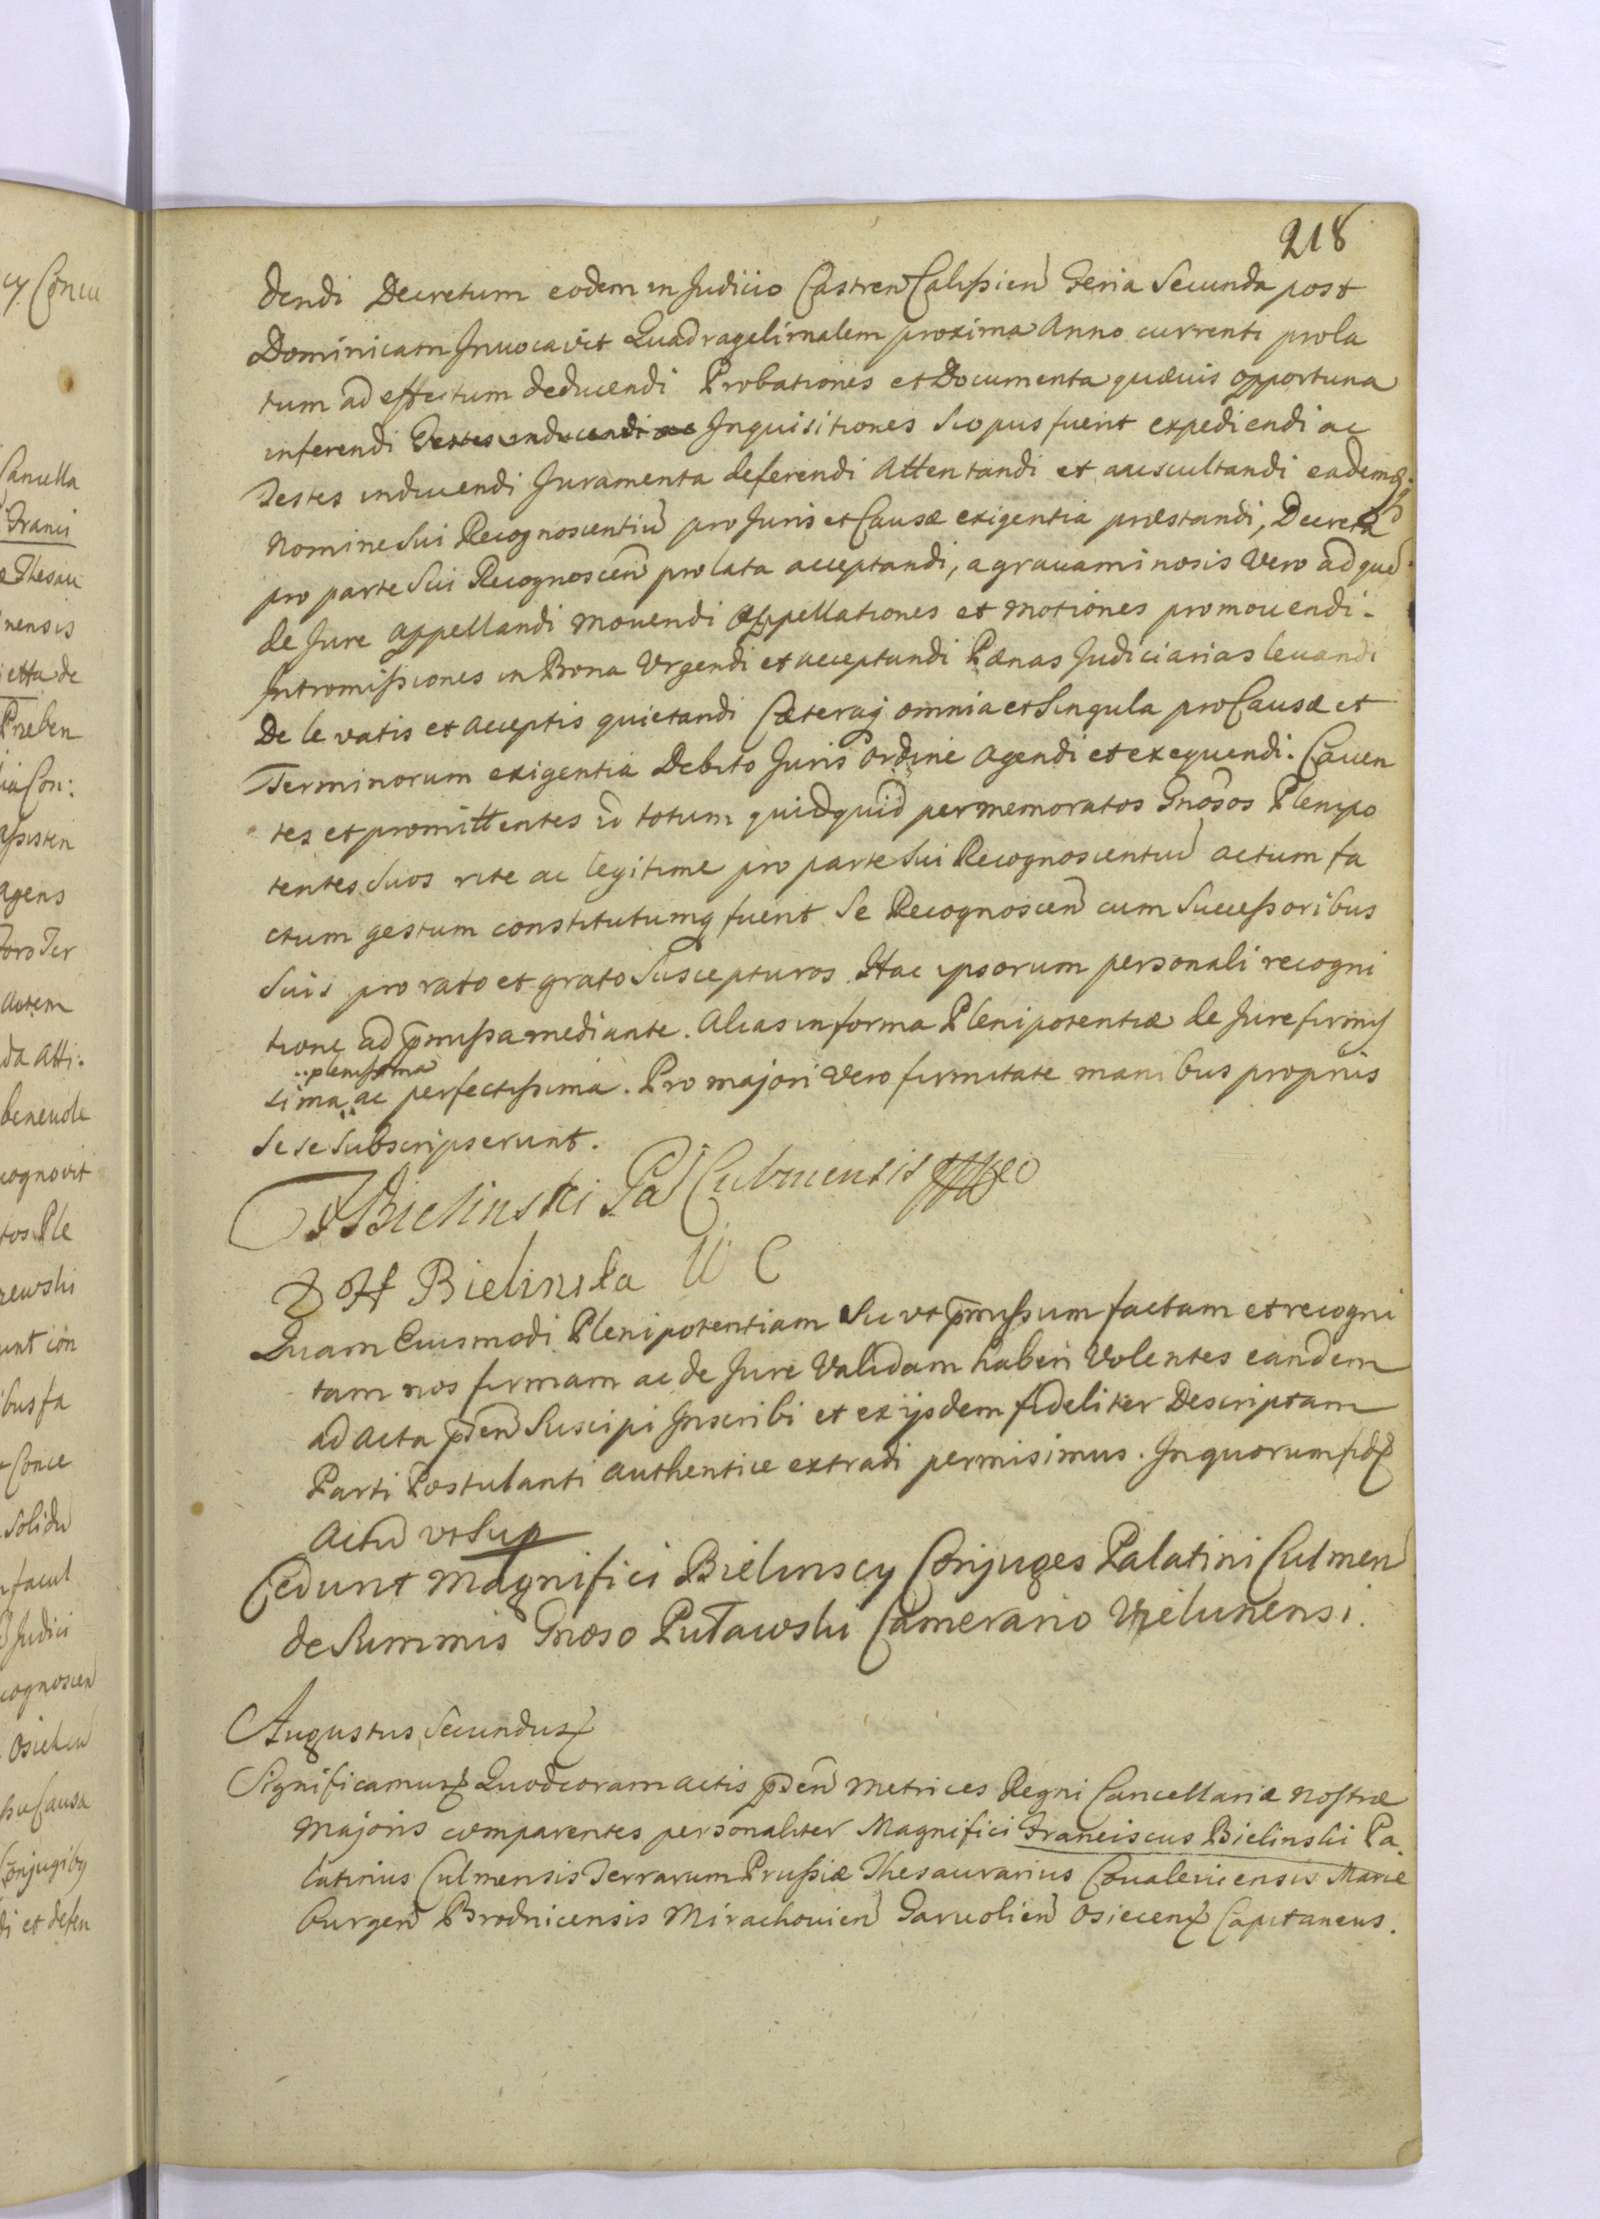 218
dendi Decretum eodem in Judicio Castren Calissien Feria Secunda post
Dominicam Invocavit Quadragesimalem proxima Anno currenti prola
tum ad effectum deducendi Probationes et Documenta quævis opportuna
inferendi Testes inducendi ac Inquisitiones si opus fuerit expediendi ac
Testes inducendi Juramenta deferendi Attentandi et auscultandi eademq;
Nomine Sui Recognoscentiu pro Juris et Causæ exigentia præstandi, Decreta
pro parte Sui Recognoscen prolata acceptandi, a gravaminosis Vero ad que
de Jure appellandi movendi appellationes et motiones promovendi.
Intromissiones in Bona Urgendi et acceptandi Pænas Judiciarias levandi
De levatis et acceptis quietandi Cæteraq omnia et Singula pro Causæ et
Terminorum exigentia Debito Juris ordine agendi et exequendi. Caven
tes et promittentes id totum quidquid per memoratos Gnosos Plenipo
tentes Suos rite ac legitime pro parte Sui Recognoscentiu actum fa
ctum gestum constitutumq fuerit Se Recognoscen cum Successoribus
Suis pro rato et grato Suscepturos. Hac ipsorum personali recogni
tione ad pmissa mediante. Alias in forma Plenipotentiæ de Jure firmis
plenissima
sima ac perfectissima. Pro majori Vero firmitate manibus propriis
Se se Subscripserunt.
Bielinski Pa Culmensis
Bielinska W C
Quam Eiusmodi Plenipotentiam Sic ut pmissum factam et recogni
tam nos firmam ac de Jure Validam haberi Volentes eandem
ad Acta pden Suscipi Inscribi et ex ijsdem fideliter Descriptam
Parti Postulanti authentice extradi permisimus. In quorum fid
Actu ut Sup
Cedunt Magnifici Bielinscy Conjuges Palatini Culmen
de Summis Gnoso Puławski Camerario Vielunensi.
Augustus Secundus
Significamus Quod coram actis pden Metrices Regni Cancellariæ Nostræ
Majoris comparentes personaliter Magnifici Franciscus Bielinski Pa
latinus Culmensis Terrarum Prussiæ Thesaurarius Covaleviensis Mariæ
burgen Brodnicensis Mirachovien Garvolien Osiecen Capitaneus.